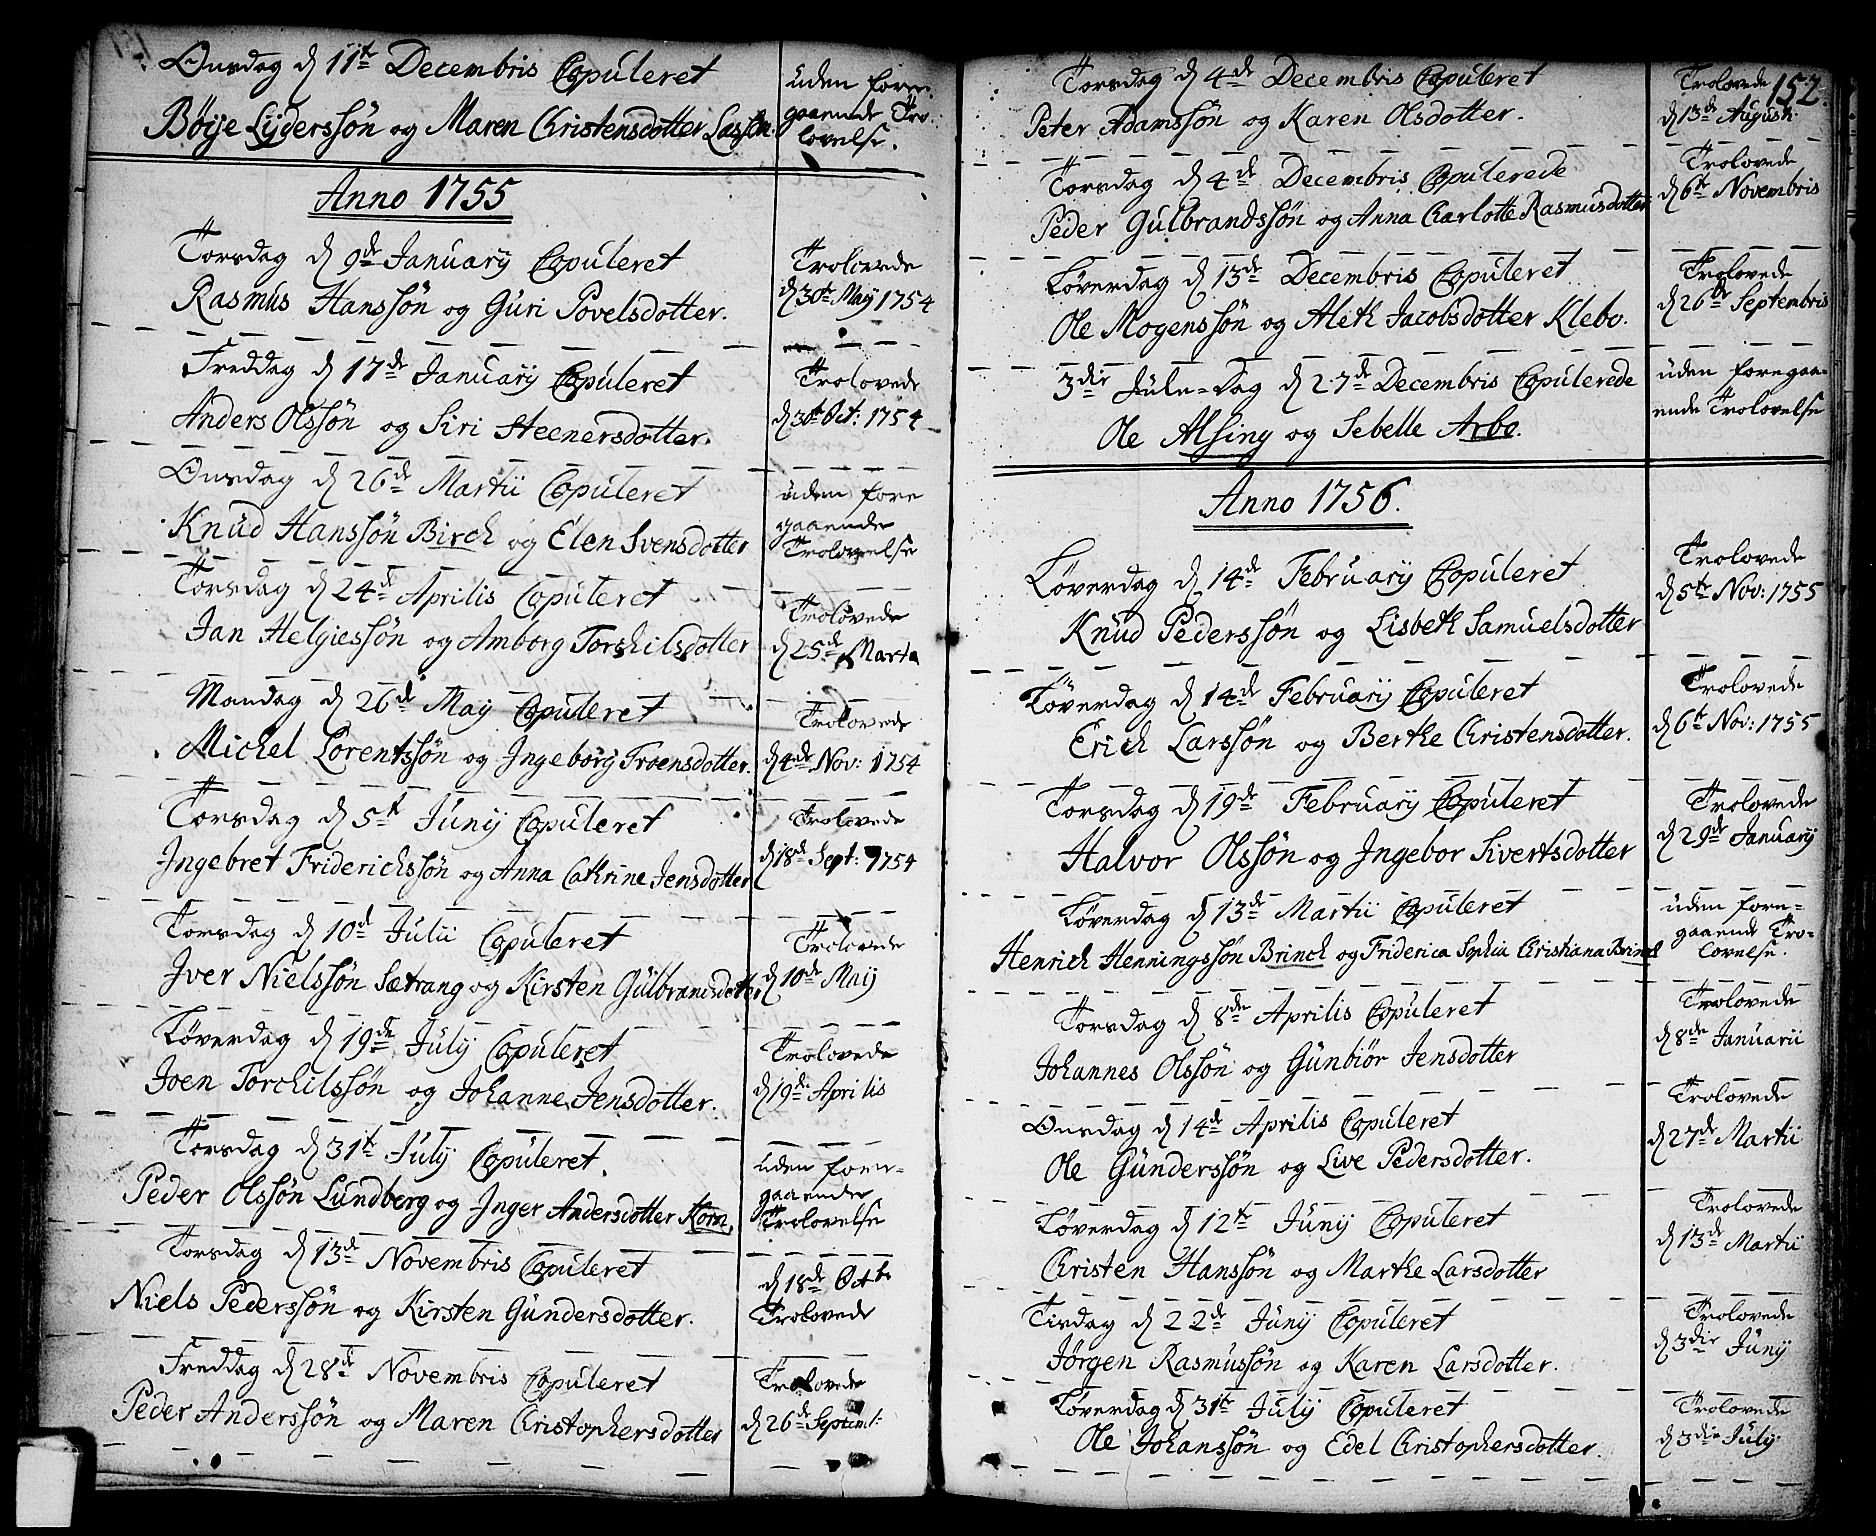 Onsdag d 11te Decembris Copuleret
Bøije Lyderssøn og Maren Christensdotter Lassen.
uden foregaaende Trolovelse.
Anno 1755
Torsdag d 9de January Copuleret
Rasmus Hanssøn og Guri Povelsdotter.
Trolovede
d 30te Maij 1754
Freddag d 17de January Copuleret
Anders Olssøn og Siri Steenersdotter.
Trolovede
d 30te Oct: 1754
Onsdag d 26de Martii Copuleret
Knud Hanssøn Birch og Elen Svensdotter
uden fore
gaaende
Trolovelse
Torsdag d 24de Aprilis Copuleret
Jan Helgiessøn og Amborg Torskilsdotter
Trolovede
d 25de Marta
Mandag d 26de Maij Copuleret
Michel Lorentssøn og Ingeborg Troensdotter.
Trolovede
d 4de Nov: 1754
Torsdag d 5t Junij Copuleret
Ingebret Friderichssøn og Anna Cathrine Jensdotter
Trolovede
d 18de Sept: 1754
Torsdag d 10d Julii Copuleret
Iver Nielssøn Sætrang og Kirsten Gulbrandsdotter
Trolovede
d 10de Maij
Løverdag d 19de Julij Copuleret
Joen Torchilssøn og Johanne Jensdotter.
Trolovede
d 19de Aprilis
Torsdag d 31te Julij Copuleret.
Peder Olssøn Lundberg og Inger Andersdotter Korn.
uden fore-
gaaende
Trolovelse
Torsdag d 13de Novembris Copuleret
Niels Pederssøn og Kirsten Gundersdotter.
d 18de Octbr
Trolovede
Freddag d 28de Novembris Copuleret
Peder Anderssøn og Maren Christophersdotter
Trolovede
d 26de Septemb:
152.
Torsdag d 4de Decembris Copuleret
Peter Adamssøn og Karen Olsdotter.
Trolovede
d 13de Augusti.
Torsdag d 4de Decembris Copulerede
Peder Gulbrandssøn og Anna Charlotte Rasmusdotter
Trolovede
d 6te Novembris
Løverdag d 13de Decembris Copuleret
Ole Mogenssøn og Aleth Jacobsdotter Klebo.
Trolovede
d 26de Septembris
3die Jule-Dag d 27de Decembris Copulerede
Ole Alsing og Sebelle Arbo.
uden foregaa-
ende Trolovelse
Anno 1756.
Løverdag d 14de February Copuleret
Knud Pederssøn og Lisbeth Samuelsdotter
Trolovede
d 5te Nov: 1755
Løverdag d 14de February Copuleret
Erich Larssøn og Berthe Christensdotter.
Trolovede
d 6te Nov: 1755
Torsdag d 19de February Copuleret
Halvor Olssøn og Ingebor Sivertsdotter
Trolovede
d 29de January
Løverdag d 13de Martii Copuleret
Henrich Henningssøn Brinch og Friderica Sophia Christiana Brinch
uden fore-
gaaende Tro-
lovelse.
Torsdag d 8de Aprilis Copuleret
Johannes Olssøn og Gunbiør Jensdotter
Trolovede
d 8de Januarii
Onsdag d 14de Aprilis Copuleret
Ole Gunderssøn og Live Pedersdotter.
Trolovede
d 27de Martii
Løverdag d 12te Junij Copuleret
Christen Hanssøn og Marthe Larsdotter
Trolovede
d 13de Martii
Tisdag d 22de Junij Copuleret
Jørgen Rasmussøn og Karen Larsdotter.
Trolovede
d 3die Junij
Løverdag d 31te Julij Copuleret
Ole Johanssøn og Edel Christophersdotter.
Trolovede
d 3die Julij